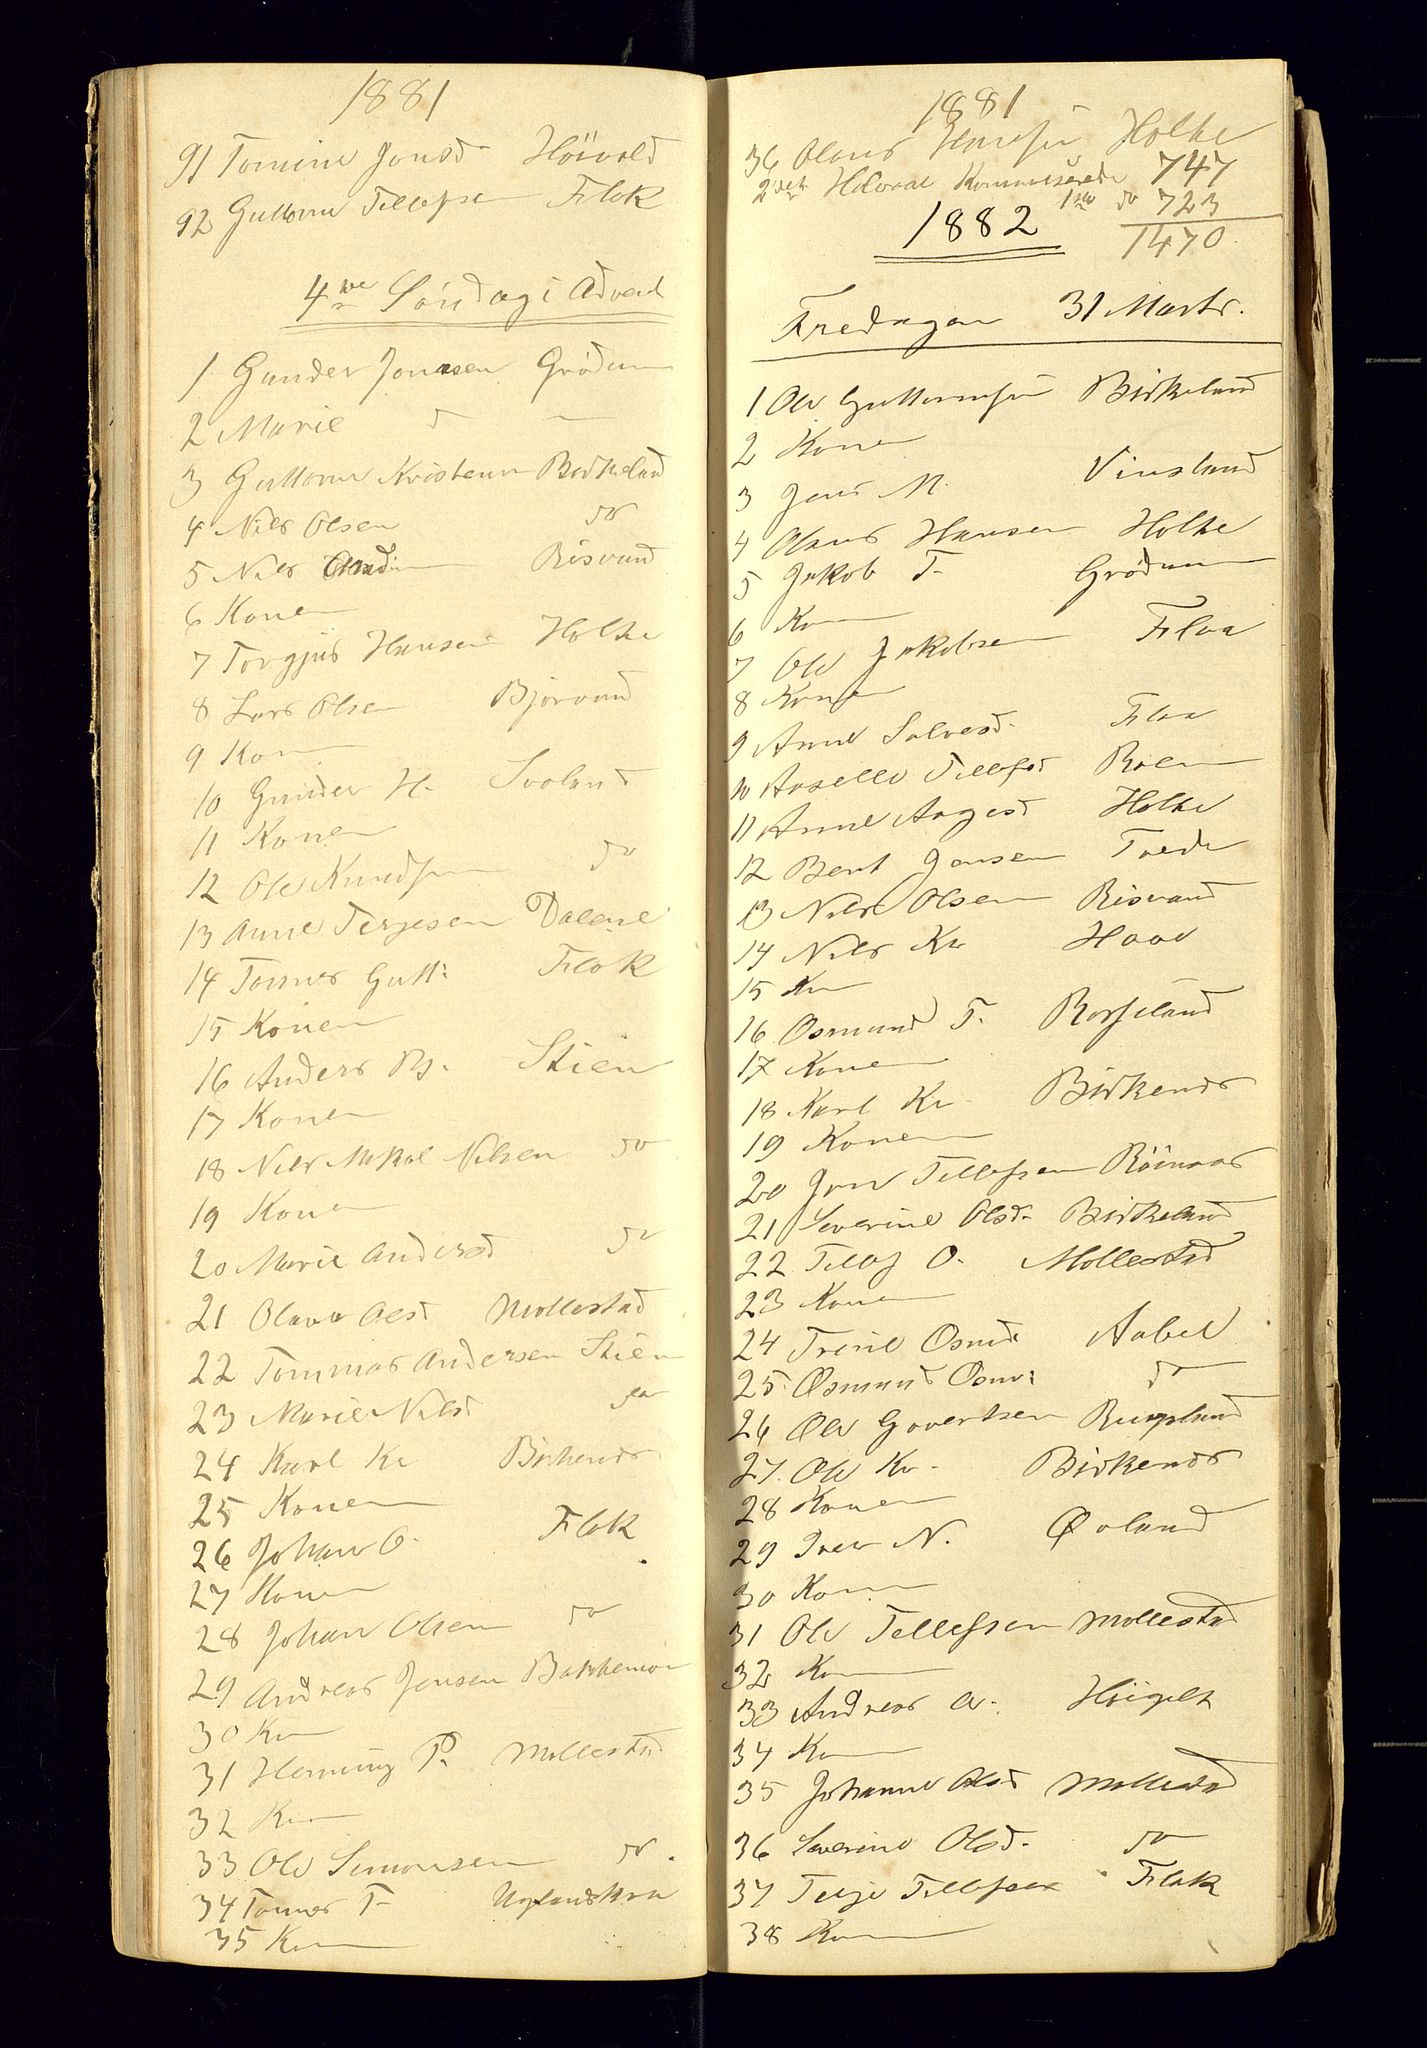 1881
91 Tomine Jonsd Höivold
92 Guttorm Tellefsen Flak
4de Söndag i Advent
1 Gunder Jonasen Grödum
2 Marie do —
3 Guttorm Kristensen Birkeland
4 Nils Olsen do
5 Nils Risvand
6 Konen
7 Torgjus Hansen Holte
8 Lars Olsen Bjorvand
9 Kon
10 Gunder H. Svaland
11 Konen
12 Ole Knudsen do
13 Anne Terjesen Dalene
14 Tomas Gutt: Flak
15 Konen
16 Anders Stien
17 Konen
18 Nils Mikal Nilsen do
19 Konen
20 Marie Andersd do
21 Olava Olsd Mollestad
22 Tommas Andersen Stien
23 Marie Nilsd do
24 Karl Kr Birkenes
25 Konen
26 Johan O. Flak
27 Konen
28 Johan Olsen do
29 Andreas Jensen Bakkemoen
30 Kon
31 Henning P. Mollestad
32 Kon
33 Ole Simonsen do
34 Tomas T. Uglandskra
35 Kon
1881
36 Olaus Hansen Holte
2det Halvaar Kommuserede 747
1ste do 723
1882 1470
Fredagen 31 Marts.
1 Ole Guttormsen Birkeland
2 Konen
3 Jens M. Vinsland
4 Olaus Hansen Holte
5 Jakob T. Grödum
6 Kon
7 Ole Jakobsen Flaa
8 Konen
9 Anne Salvesd. Flaa
10 Aaselle Tellefsd
11 Anne Aagesd Holte
12 Bent Jensen Tvede
13 Nils Olsen Risvand
14 Nils Kr Haave
15 Kon
16 Osmund T. Rosseland
17 Konen
18 Karl Kr. Birkenes
19 Konen
20 Jon Tellefsen Röinaas
21 Severine Olsd. Birkeland
22 Tellef O. Mollestad
23 Konen
24 Trine Osmd. Aabel
25 Osmund Osm: do
26 Ole Govertsen
27 Ole Kr. Birkenes
28 Konen
29 Iver N. Øvland
30 Kon
31 Ole Tellefsen Mollestad
32 Kon
33 Andreas A. Höigilt
34 Kon
35 Johanne Olsd Mollestad
36 Severine Olsd. do
37 Terje Tellefsen Flak
38 Kon